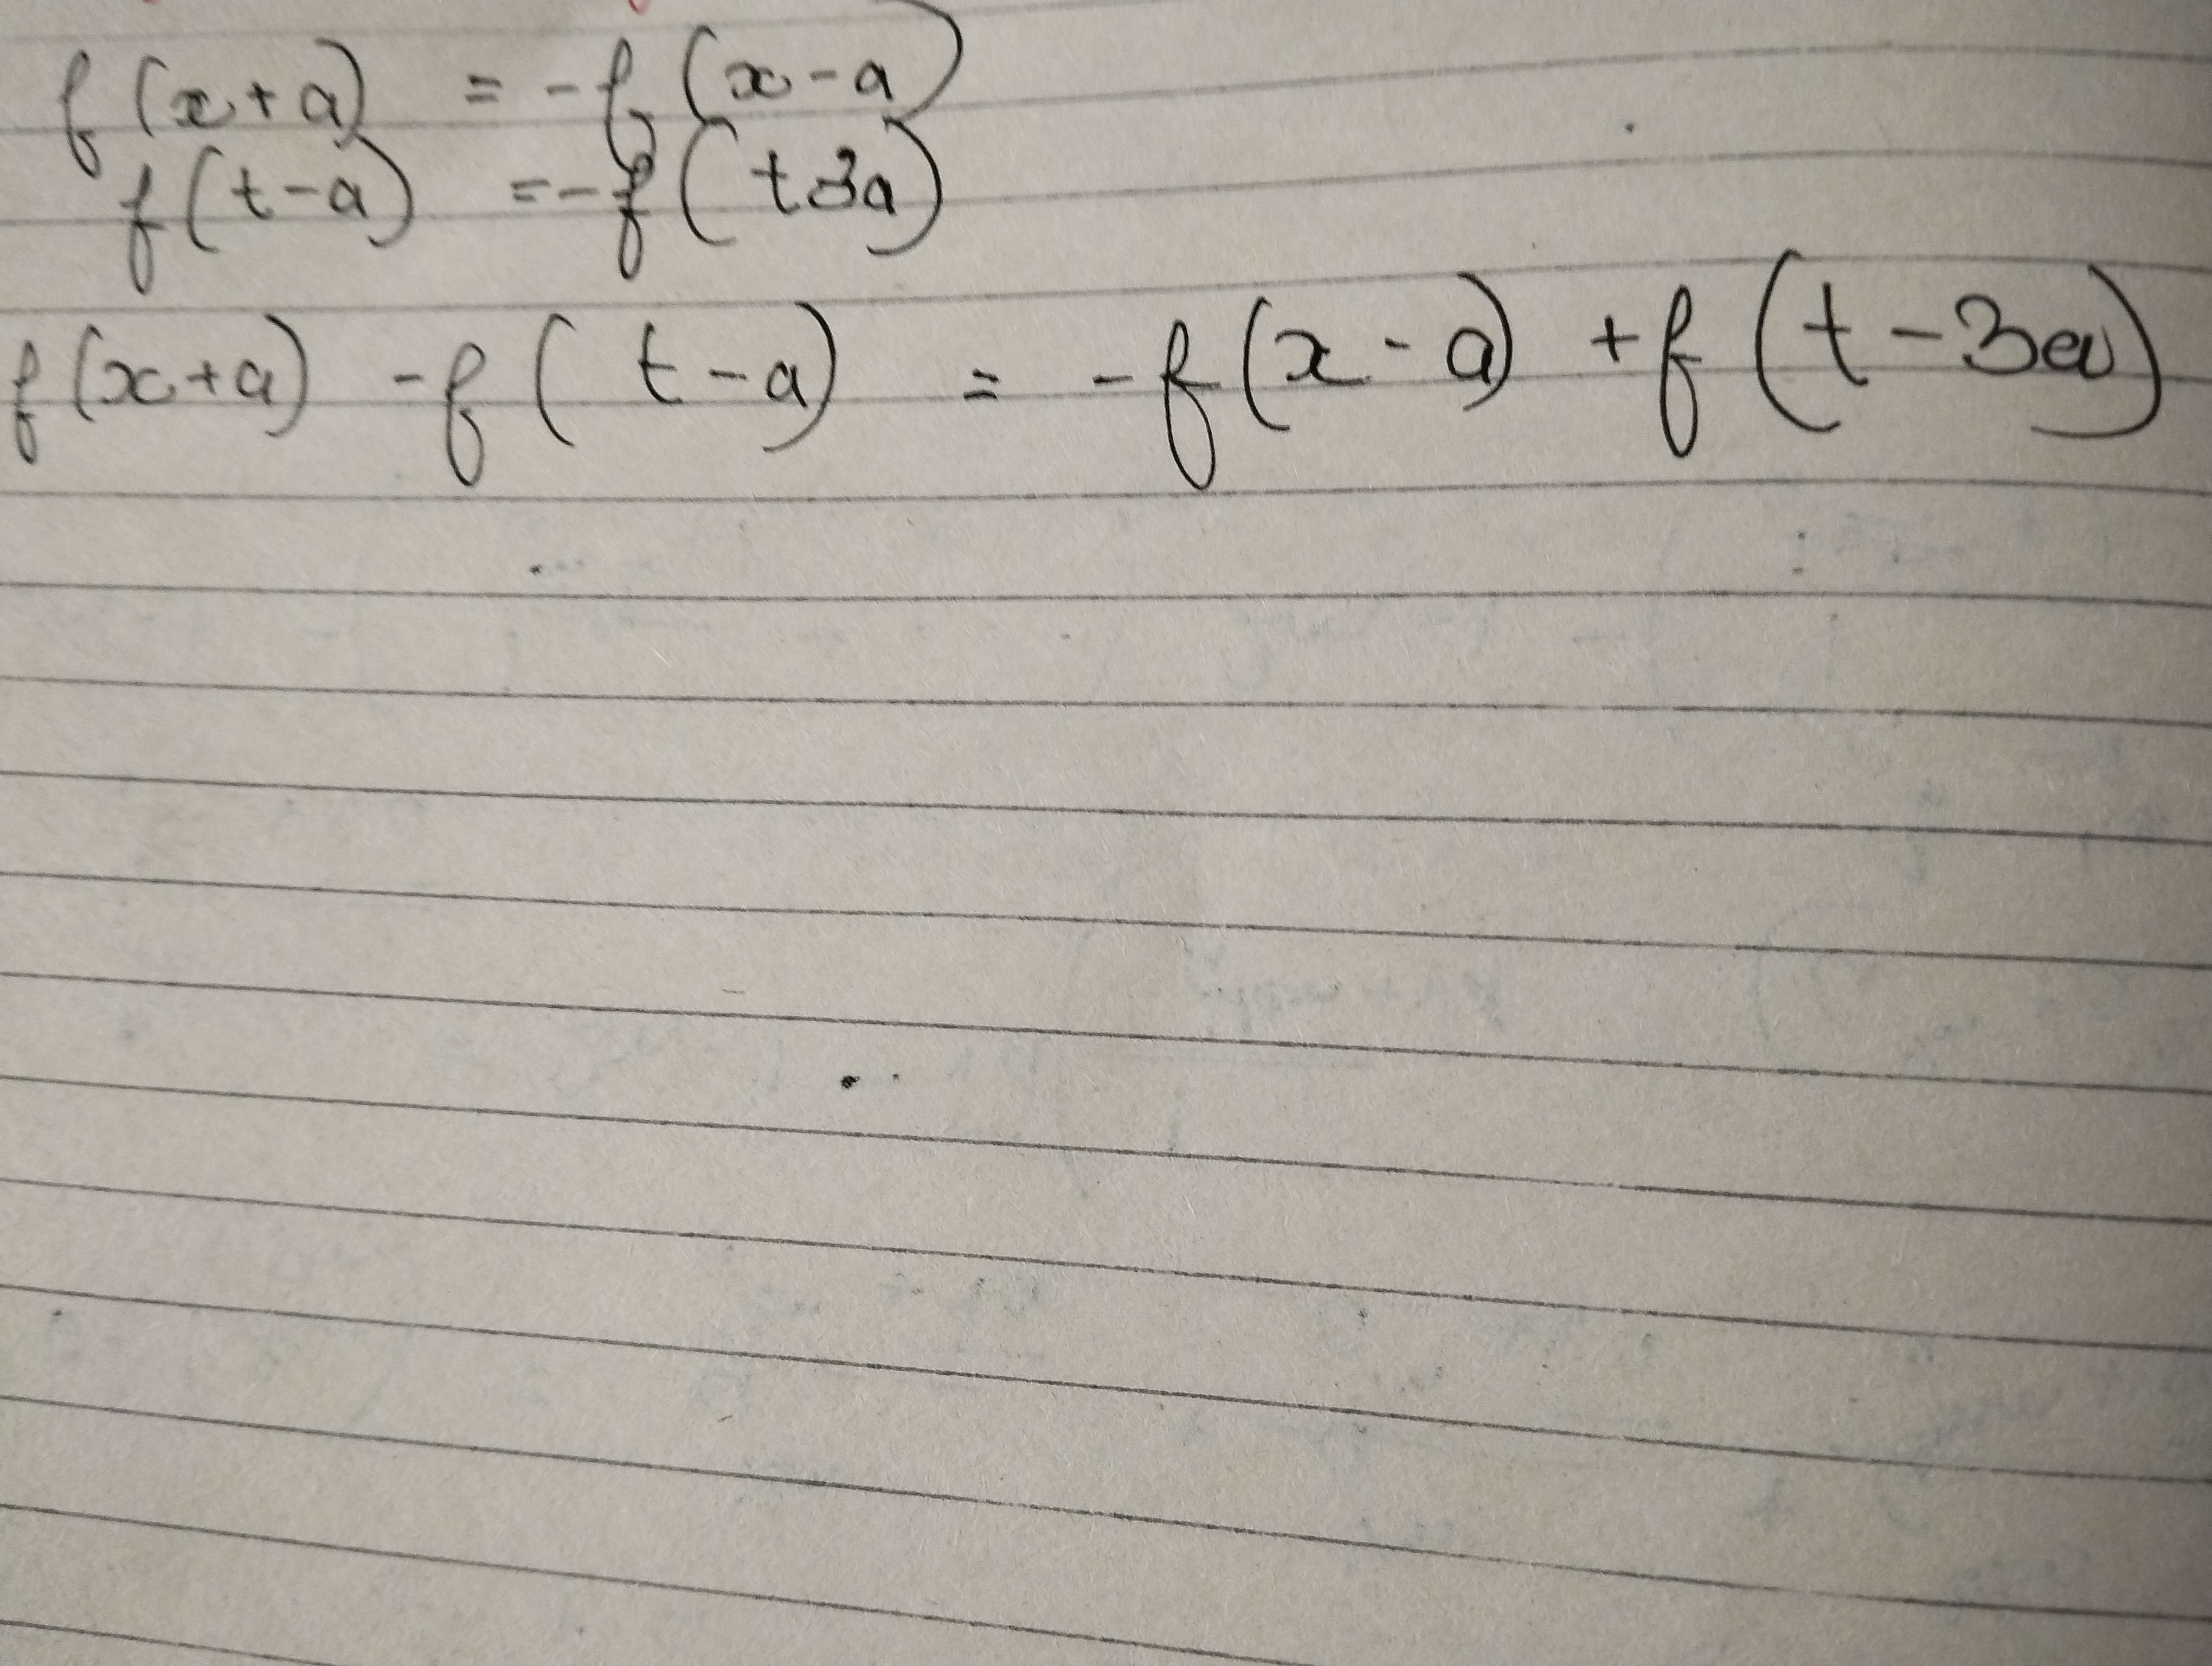 f(x+a) = -f(x-a)
f(t-a) =-f(t-3a)
f(x+a) -f(t-a) = -f(x-a) +f(t-3a)